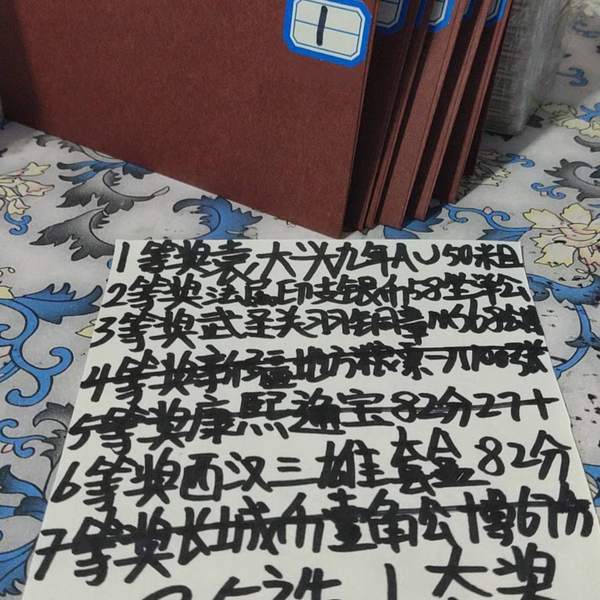 1
1等奖袁大头九年AU50
2等奖法属印支银币58坐洋公
3等奖武圣关羽铜章
4等奖新疆地方粮票
5等奖康熙通宝82分27+
6等奖西汉三雄套盒82分
7等奖长城币壹角公博67分
大奖